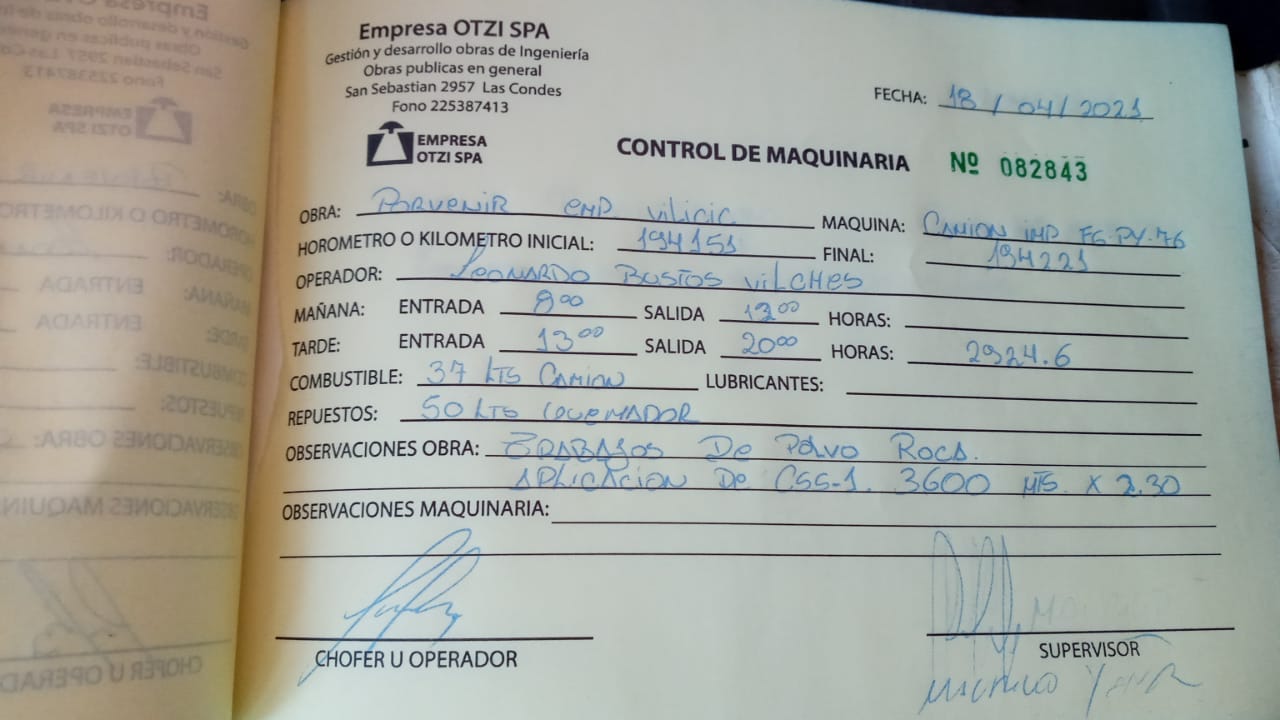 Empresa OTZI SPA
Gestión y desarrollo obras de Ingeniería
Obras publicas en general
San Sebastian 2957 Las Condes
Fono 225387413
EMPRESA
OTZI SPA
FECHA: 18 / 04 / 2021
CONTROL DE MAQUINARIA Nº 082843
OBRA: Porvenir EMP. Vilicic MAQUINA: CAMION IMP FG-PY-76
HOROMETRO O KILOMETRO INICIAL: 194151 FINAL: 194221
OPERADOR: Leonardo Bustos Vilches
MAÑANA: ENTRADA 8:00 SALIDA 12:00 HORAS:
TARDE: ENTRADA 13:00 SALIDA 20:00 HORAS: 2924.6
COMBUSTIBLE: 37 LTS CAMION LUBRICANTES:
REPUESTOS: 50 LTS QUEMADOR
OBSERVACIONES OBRA: TRABAJOS De Polvo Roca.
APLICACION De CSS-1. 3600 MTS. X 2.30
OBSERVACIONES MAQUINARIA:
CHOFER U OPERADOR
SUPERVISOR